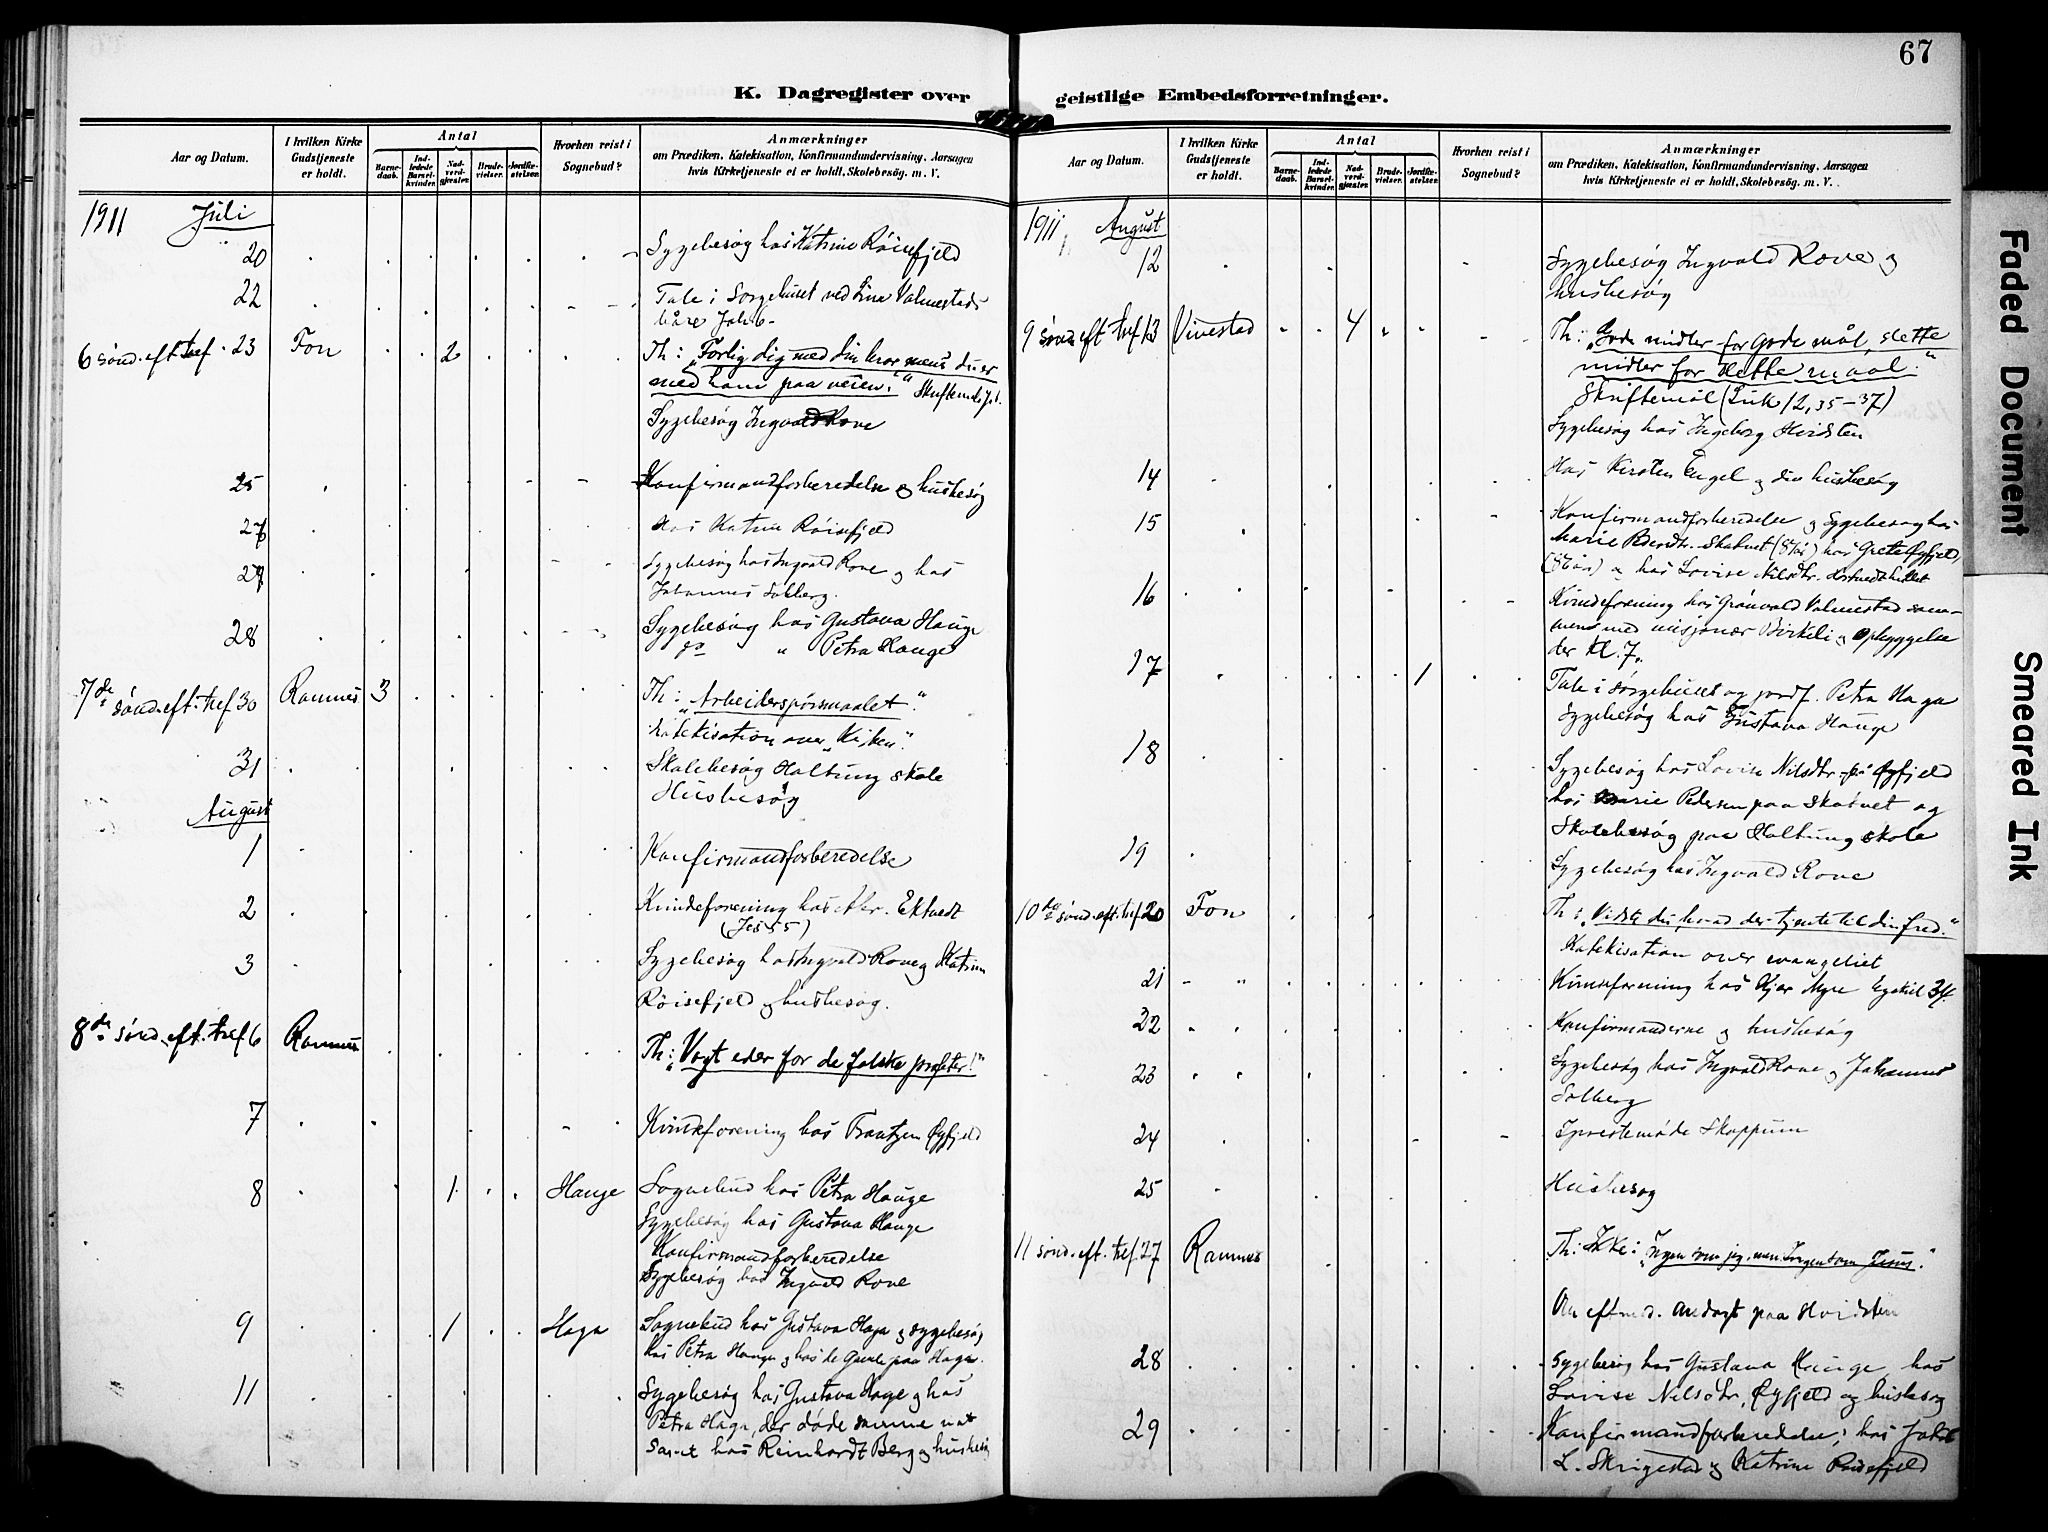 67
K. Dagregister over geistlige Embedsforretninger.
Aar og Datum.
I hvilken Kirke Gudstjeneste er holdt.
Antal
Barnedaab.
Indledede Barselkvinder.
Nadverdgjæster.
Brudevielser.
Jordfæstelser.
Hvorhen reist i Sognebud?
Anmærkninger
om Prædiken, Katekisation, Konfirmandundervisning, Aarsagen
hvis Kirketjeneste ei er holdt, Skolebesög. m. V.
1911 Juli
20 Sygebesøg hos Katrine Röisefjeld
22 Tale i Sorgehuset ved Lina Valmestads
båre
6 sönd. eft. tref. 23 Fon 2 Th: „Forlig dig med din bror mens du er
med ham paa veien."
Sygebesög Ingvald Rove
25 Konfirmandforberedelse og husbesög
26 Hos Katrine Röisefjeld
27 Sygebesög hos Ingvald Rove og hos
Johannes Solberg.
28 Sygebesög hos Gustava Hauge
do " Petra Hauge
7de sönd. eft. tref. 30 Ramnes 3 Th: „Arbeiderspörsmaalet".
Katekisation over „Kirken".
31 Skolebesög Haltung skole
Husbesög
August
1 Konfirmandforberedelse
2 Kvindeforening hos Abr. Ektvedt
(Jes 55)
3 Sygebesög hos Ingvald Rove og Katrine
Röisefjeld og husbesög.
8de sönd. eft. tref. 6 Ramnes Th: „Vogt eder for de falske profeter!"
7 Kvindeforening hos Frantzen Öyfjeld
8 1 Hauge Sognebud hos Petra Hauge
Sygebesög hos Gustava Hauge
Konfirmandforberedelse
Sygebesög hos Ingvald Rove
9 1 Haga Sognebud hos Gustava Haga og sygebesög
hos Petra Hauge og hos de gamle paa Haga.
11 Sygebesög hos Gustava Hage og hos
Petra Haga, der döde samme nat
samt hos Reinhardt Berg og husbesög
Aar og Datum.
I hvilken Kirke Gudstjeneste er holdt.
Antal
Barnedaab.
Indledede Barselkvinder.
Nadverdgjæster.
Brudevielser.
Jordfæstelser.
Hvorhen reist i Sognebud?
Anmærkninger
om Prædiken, Katekisation, Konfirmandundervisning, Aarsagen
hvis Kirketjeneste ei er holdt, Skolebesög. m. V.
1911 August
12 Sygebesög Ingvald Rove og
husbesög
9 sönd eft tref 13 Vivestad 4 Th: „Gode midler for gode mål, slette
midler for slette maal."
Skriftemål (Luk 12, 35-37)
Sygebesög hos Ingeborg Hvidsten
14 Hos Kirsten Engel og div husbesög
15 Konfirmandforberedelse og Sygebesög hos
Marie Skatvet hos Grete Öyfjeld
og hos Lovise Nilsdtr.
16 Kvindeforening hos Grönvold Valmestad sam-
men med misjonær Birkeli og opbyggelse
der Kl. 7.
17 1 Tale i sörgehuset og jordf. Petra Haga
Sygebesög hos Gustava Hauge
18 Sygebesög hos Lovise Nilsdtr. på Öyfjeld
hos Marie Pedersen paa Skatvet og
Skolebesög paa Haltung skole
19 Sygebesög hos Ingvald Rove
10de sönd. eft. tref. 20 Fon Th: „Vidste du, hvad der tjente til din fred."
Katekisation over evangeliet
21 Kvindeforening hos Kjær Myre 34
22 Konfirmanderne og husbesög
23 Sygebesög hos Ingvald Rove og Johannes
Solberg
24 I prestemöde Skoppum
25 Husbesög
11 sönd. eft. tref. 27 Ramnes Th: Ikke: „Ingen som jeg, men Ingen som Jesus."
Om eftmd. andagt paa Hvidsten
28 Sygebesög hos Gustava Hauge, hos
Lovise Nilsdtr, Öyfjeld og husbesög
29 Konfirmandforberedelse; hos Jakob
L. Skrigestad og Katrine Röisefjeld
Faded Document
Smeared Ink